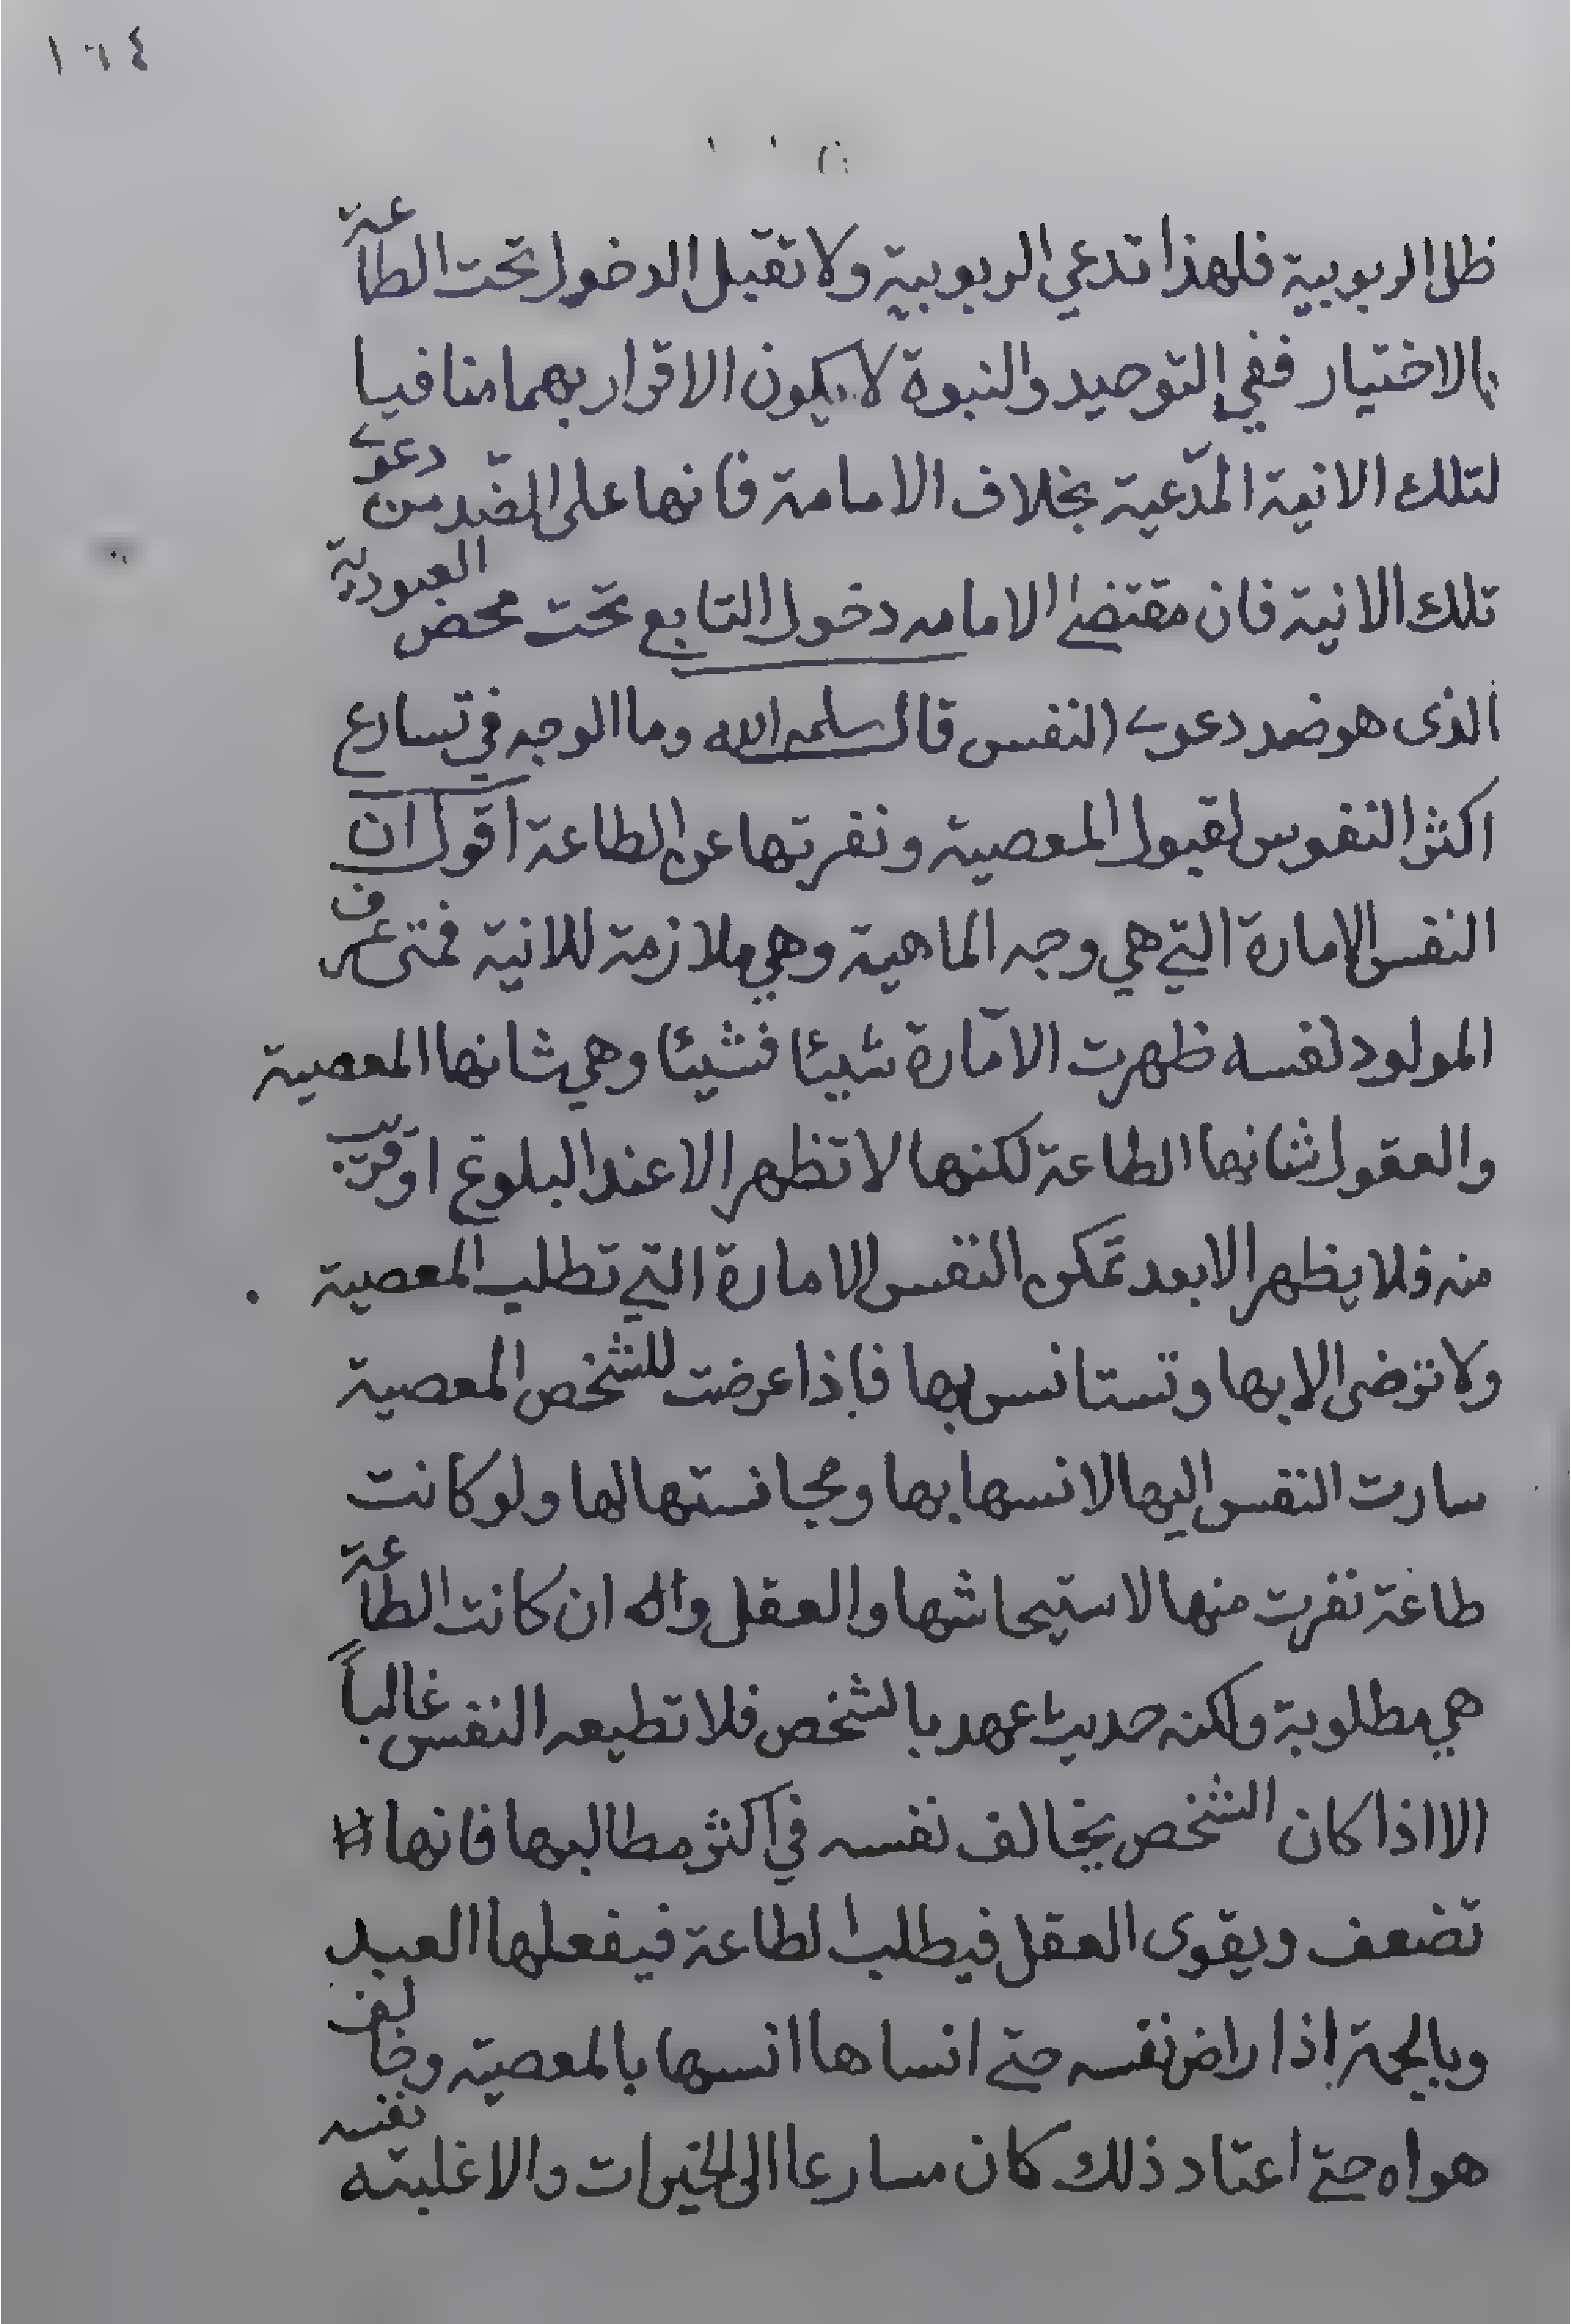 ١٦٤
ظل الربوبية فلهذا تدعي الربوبية ولا تقبل الدخول تحت الطاعة
بالاختيار ففي التوحيد والنبوة لا يكون الاقرار بهما منافيا
لتلك الانية المدّعية بخلاف الامامة فانها على الضد من دعوى
تلك الانية فان مقتضى الامامه دخول التابع تحت محض العبودية
الذى هو ضد دعوى النفس قال سلمه الله وما الوجه في تسارع
اكثر النفوس لقبول المعصية ونفرتها عن الطاعة اقول ان
النفس الامارة التي هي وجه الماهية وهي ملازمة للانية فمتى عرف
المولود نفسه ظهرت الامّارة شيئا فشيئا وهي شانها المعصية
والعقول شانها الطاعة لكنها لا تظهر الا عند البلوغ او قريب
منه فلا يظهر الا بعد تمكن النفس الامارة التي تطلب المعصية
ولا ترضى الا بها وتستانس بها فاذا عرضت للشخص المعصية
سارت النفس اليها لانسها بها ومجانستها لها ولو كانت
طاعة نفرت منها لاستيحاشها والعقل وان كانت الطاعة
هي مطلوبة ولكنه حديث عهد بالشخص فلا تطيعه النفس غالباً
الا اذا كان الشخص يخالف نفسه في اكثر مطالبها فانها
تضعف ويقوى العقل فيطلب الطاعة فيفعلها العبد
وبالجملة اذا راض نفسه حتى انساها انسها بالمعصية وخالف
هواه حتى اعتاد ذلك كان مسارعا الى الخيرات والا غلبته نفسه